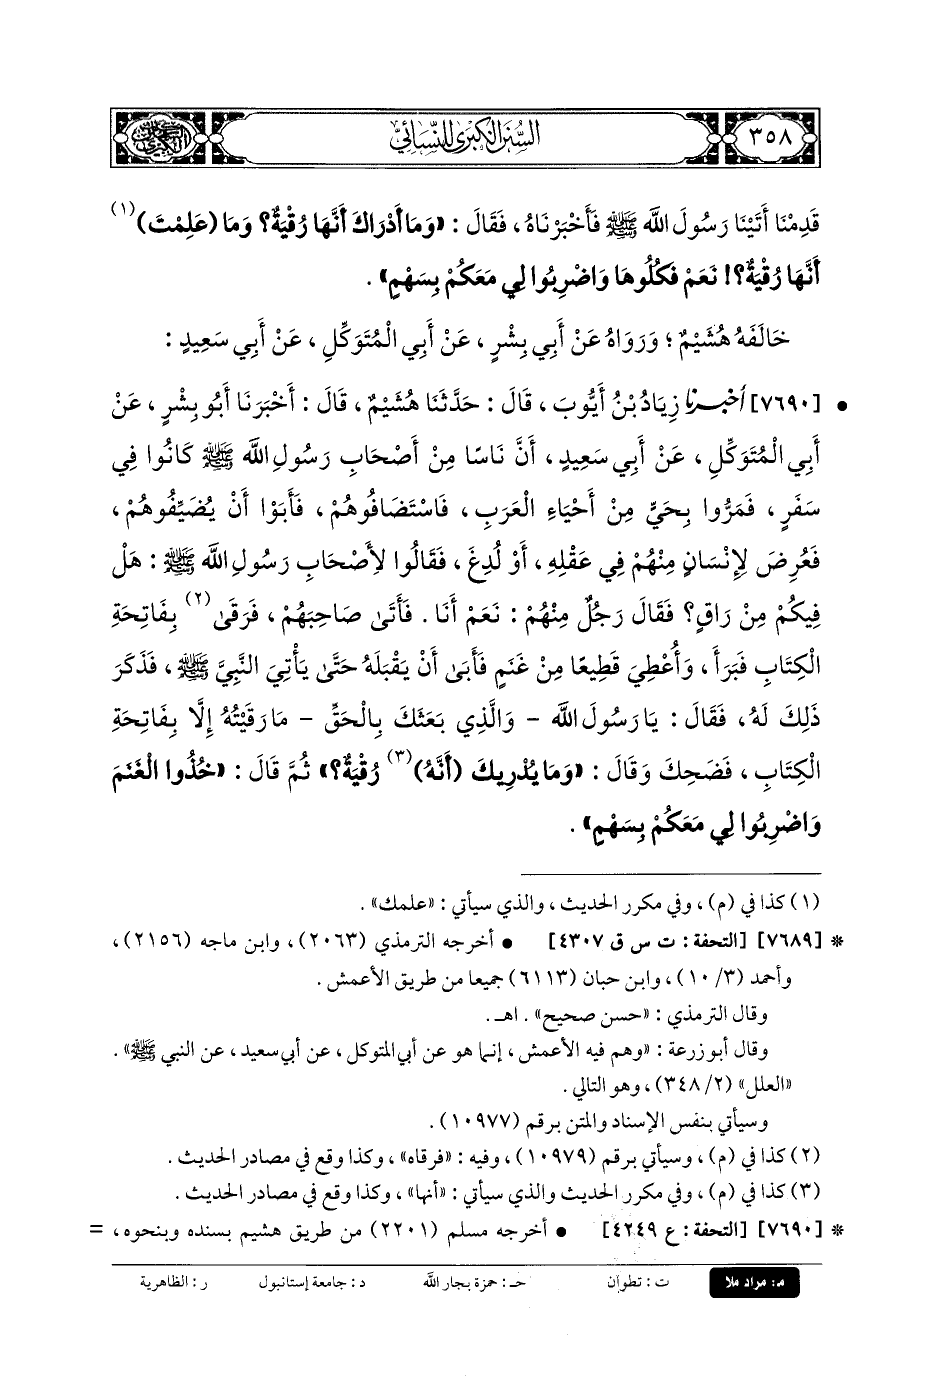 ٣٥٨
السنن الكبرى للنسائي
قَدِمْنَا أَتَيْنَا رَسُولَ اللَّه ﷺ فَأَخْبَرْنَاهُ، فَقَالَ: «وَمَا أَدْرَاكَ أَنَّهَا رُقْيَةٌ؟ وَمَا (عَلِمْتَ)(١)
أَنَّهَا رُقْيَةٌ؟! نَعَمْ فَكُلُوهَا وَاضْرِبُوا لِي مَعَكُمْ بِسَهْمٍ».
خَالَفَهُ هُشَيْمٌ؛ وَرَوَاهُ عَنْ أَبِي بِشْرٍ، عَنْ أَبِي الْمُتَوَكِّلِ، عَنْ أَبِي سَعِيدٍ:
• [٧٦٩٠] أخبرنا زِيَادُ بْنُ أَيُّوبَ، قَالَ: حَدَّثَنَا هُشَيْمٌ، قَالَ: أَخْبَرَنَا أَبُو بِشْرٍ، عَنْ
أَبِي الْمُتَوَكِّلِ، عَنْ أَبِي سَعِيدٍ، أَنَّ نَاسًا مِنْ أَصْحَابِ رَسُولِ اللَّه ﷺ كَانُوا فِي
سَفَرٍ، فَمَرُّوا بِحَيٍّ مِنْ أَحْيَاءِ الْعَرَبِ، فَاسْتَضَافُوهُمْ، فَأَبَوْا أَنْ يُضَيِّفُوهُمْ،
فَعُرِضَ لِإِنْسَانٍ مِنْهُمْ فِي عَقْلِهِ، أَوْ لُدِغَ، فَقَالُوا لِأَصْحَابِ رَسُولِ اللَّه ﷺ: هَلْ
فِيكُمْ مِنْ رَاقٍ؟ فَقَالَ رَجُلٌ مِنْهُمْ: نَعَمْ أَنَا. فَأَتَى صَاحِبَهُمْ، فَرَقَى(٢) بِفَاتِحَةِ
الْكِتَابِ فَبَرَأَ، وَأُعْطِيَ قَطِيعًا مِنْ غَنَمٍ فَأَبَى أَنْ يَقْبَلَهُ حَتَّى يَأْتِيَ النَّبِيَّ ﷺ، فَذَكَرَ
ذَلِكَ لَهُ، فَقَالَ: يَا رَسُولَ اللَّه - وَالَّذِي بَعَثَكَ بِالْحَقِّ - مَا رَقَيْتُهُ إِلَّا بِفَاتِحَةِ
الْكِتَابِ، فَضَحِكَ وَقَالَ: «وَمَا يُدْرِيكَ (أَنَّهُ)(٣) رُقْيَةٌ؟» ثُمَّ قَالَ: «خُذُوا الْغَنَمَ
وَاضْرِبُوا لِي مَعَكُمْ بِسَهْمٍ».
(١) كذا في (م)، وفي مكرر الحديث، والذي سيأتي: «علمك».
* [٧٦٨٩] [التحفة: ت س ق ٤٣٠٧] • أخرجه الترمذي (٢٠٦٣)، وابن ماجه (٢١٥٦)،
وأحمد (٣/ ١٠)، وابن حبان (٦١١٣) جميعا من طريق الأعمش.
وقال الترمذي: «حسن صحيح». اهـ.
وقال أبو زرعة: «وهم فيه الأعمش، إنما هو عن أبي المتوكل، عن أبي سعيد، عن النبي ﷺ».
«العلل» (٢/ ٣٤٨)، وهو التالي.
وسيأتي بنفس الإسناد والمتن برقم (١٠٩٧٧).
(٢) كذا في (م)، وسيأتي برقم (١٠٩٧٩)، وفيه: «فرقاه»، وكذا وقع في مصادر الحديث.
(٣) كذا في (م)، وفي مكرر الحديث والذي سيأتي: «أنها»، وكذا وقع في مصادر الحديث.
* [٧٦٩٠] [التحفة: ع ٤٢٤٩] • أخرجه مسلم (٢٢٠١) من طريق هشيم بسنده وبنحوه، =
م: مراد ملا ت: تطوان حـ: حمزة بجار اللَّه د: جامعة إستانبول ر: الظاهرية